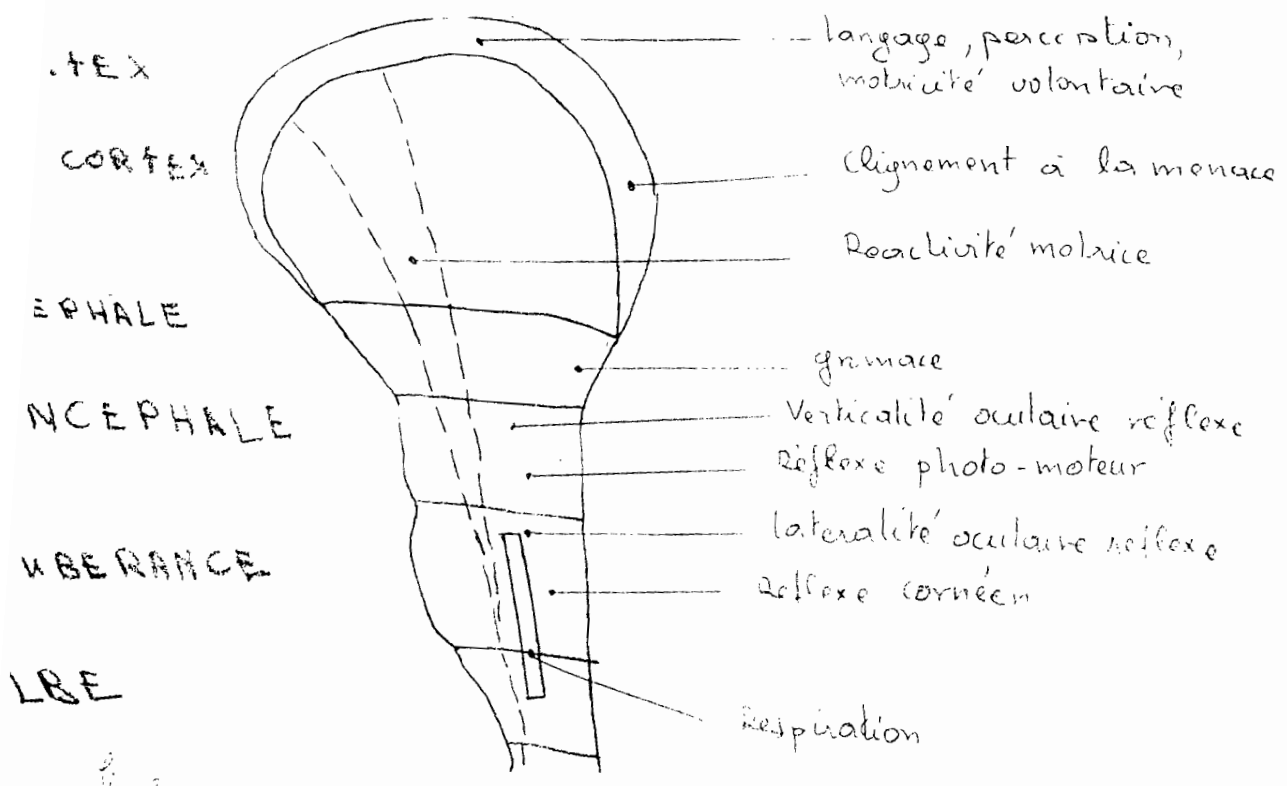 .TEX
CORTEX
EPHALE
NCEPHALE
UBERANCE
LBE
langage, perception,
motricité volontaire
Clignement à la menace
Réactivité motrice
grimace
Verticalité oculaire réflexe
Réflexe photo-moteur
latéralité oculaire réflexe
Réflexe cornéen
Respiration